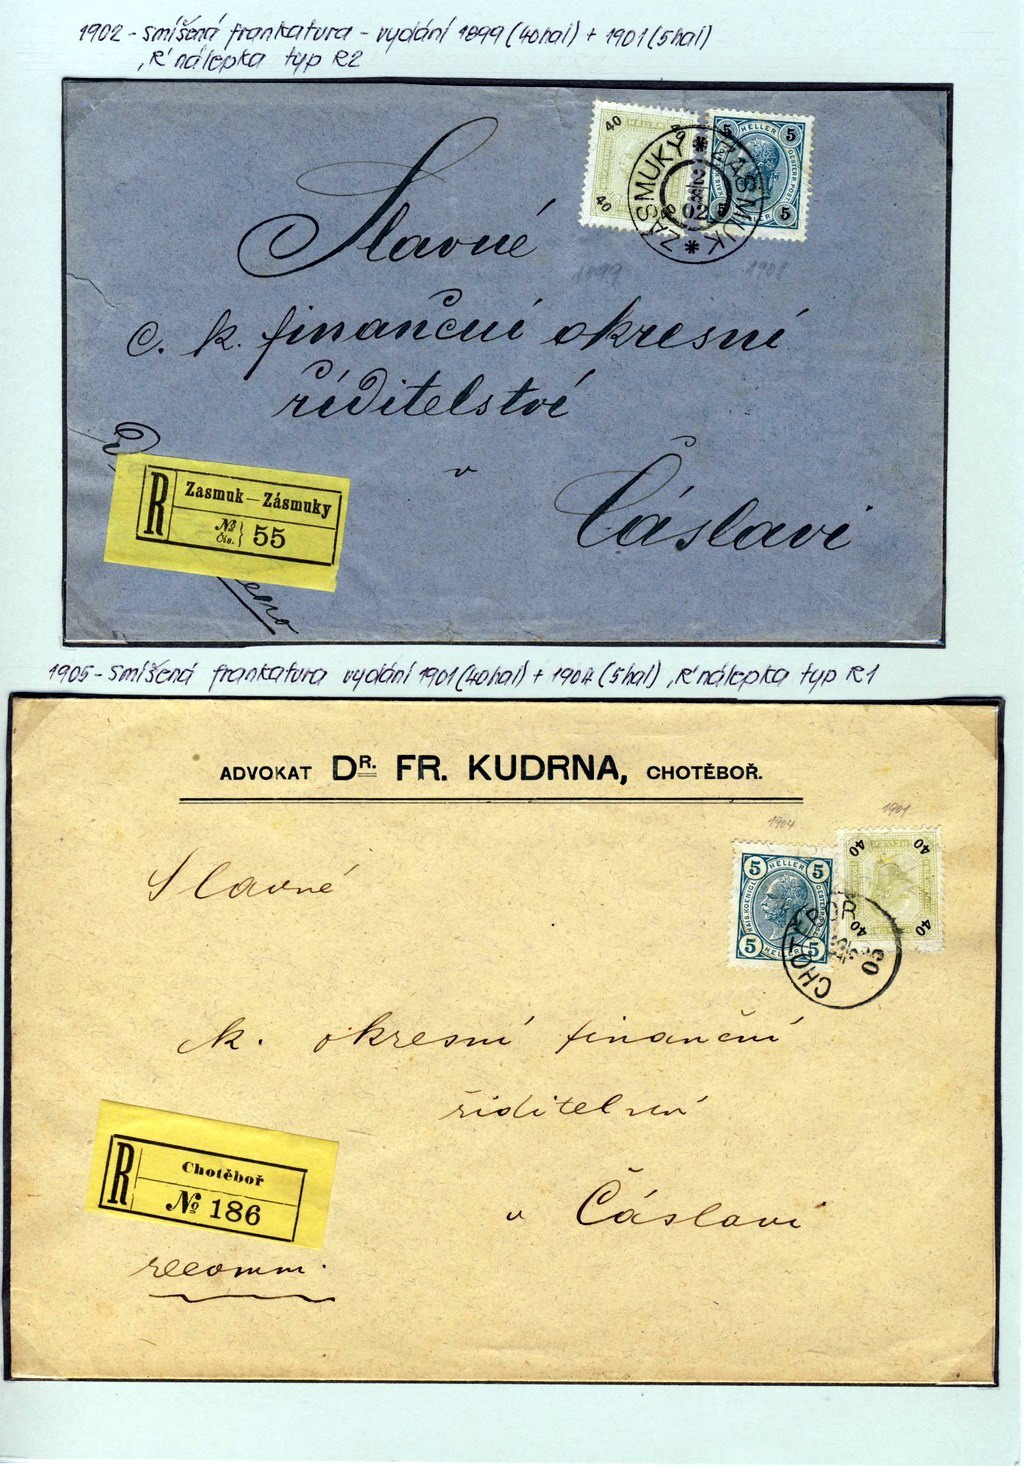 1902 - smíšená frankatura - vydání 1899 (40hal) + 1901 (5hal)
'R' nálepka typ R2
40 40 40
HELLER
5 HELLER 5
5 5
ZASMUK * ZÁSMUKY *
02
1899 1901
Slavné
c. k. finanční okresní
říditelství
v
Čáslavi
R Zasmuk — Zásmuky
№ Čís. } 55
1905 - smíšená frankatura vydání 1901 (40hal) + 1904 (5hal) 'R' nálepka typ R1
ADVOKAT DR. FR. KUDRNA, CHOTĚBOŘ.
1904 1901
5 HELLER 5
5 HELLER 5
40 40
40 40
CHOTĚBOŘ
Slavné
k. okresní finanční
v Čáslavi
R Chotěboř
№ 186
recomm.